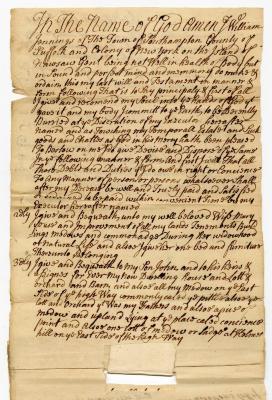 In The Name of God Amen I William
Jennings of The Town of Southampton County of
Suffolk and Colony of New york on the Island of
Nassaw Gent being not Well in Health of Body but
in Sound and perfect mind and memmory Do make &
ordain this my last will and Testament in manner &
form following That is to Say principaly & first of all
I give and recomend my Soul into ye Hands of God that
gave it and my Body I commit to ye Earth to be Decently
Buried at ye Discration of my Executor hereafter
named and as touching my Temporall Estate and Such
goods and Chattels as God in his mercy hath been pleased
To Bestow on me I do give Devise and Dispose of ye Same
In ye following manner & form and first I will That all
Those Debts and Duties as I do owe in right or Conscience
To Any Manner of person or persons whatsoever Shall be
after my Decease be well and Truely paid and Satisfied
or ordained to be paid within convenient Time by my
Executor hereafter named
2dly I give and Bequeath unto my well beloved Wife Mary
ye use and Improvement of all my Lands Tenements build
ings medows and commonage During her widowhood
or natural life and also I give her one bed and furniture
Thereunto Belonging
3dly I give and Bequeath to my Son John and his heirs &
assignes For Ever my now Dwelling House and Lott &
orchard and Barn and also all my Medow on ye East
Side of ye high Way commonly called ye also ye
Lott and orchard yt Was my Fathers and also a piece of
medow and upland lying at ye place caled concience
point and also one Lott of medow or Sadge at Holmes
hill on ye East Side of the high Way